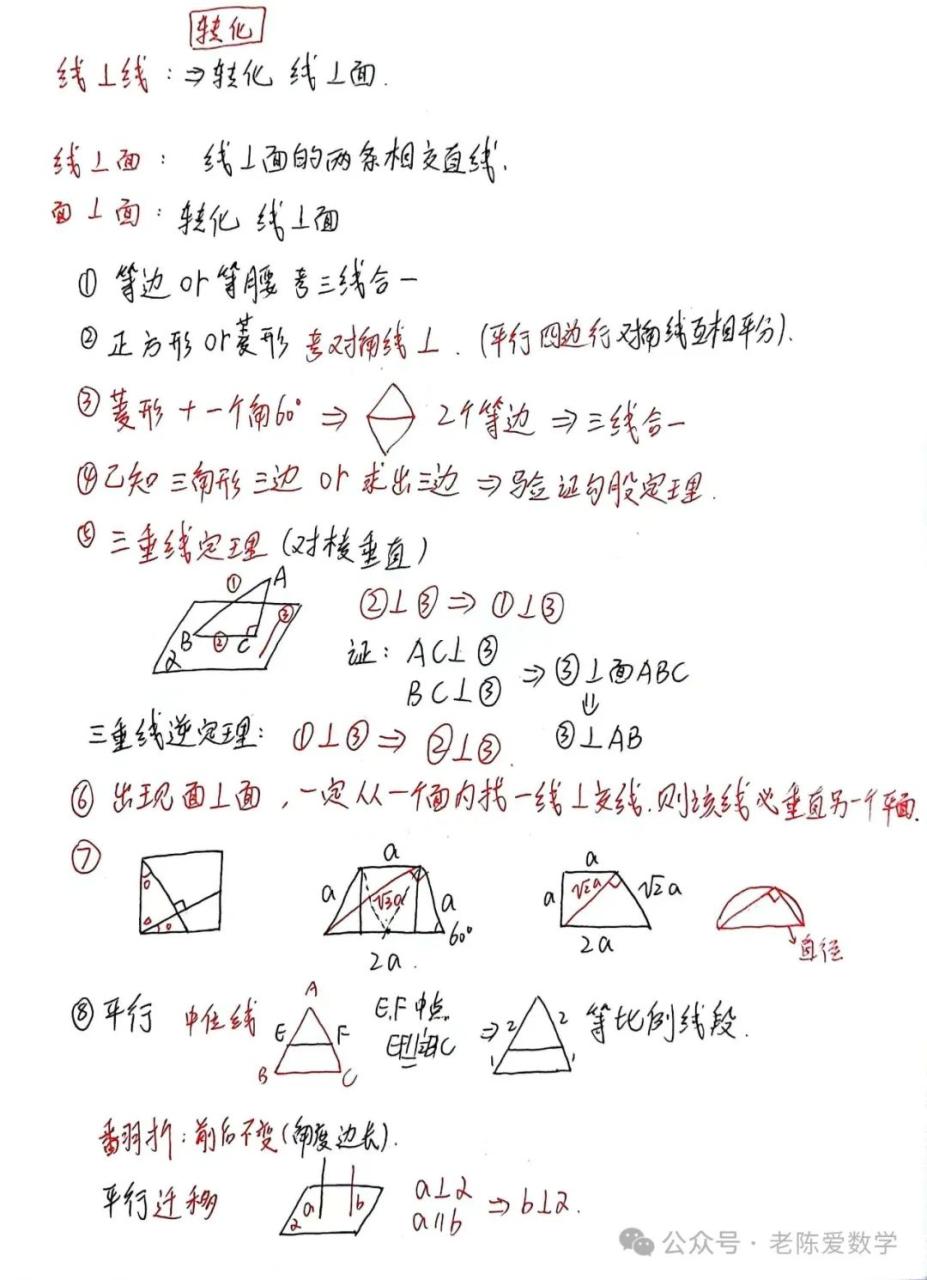 转化
线⊥线：⇒转化 线⊥面.
线⊥面： 线⊥面的两条相交直线.
面⊥面：转化 线⊥面
① 等边 or 等腰 考三线合一
② 正方形 or 菱形 考对角线⊥.（平行四边行对角线互相平分）.
③ 菱形 + 一个角60° ⇒ 2个等边 ⇒ 三线合一
④ 已知三角形三边 or 求出三边 ⇒ 验证勾股定理.
⑤ 三垂线定理（对棱垂直）
① A ③ B ② C α
②⊥③ ⇒ ①⊥③
证：AC⊥③
BC⊥③ ⇒ ③⊥面ABC
⇓
③⊥AB
三垂线逆定理：①⊥③ ⇒ ②⊥③.
⑥ 出现面⊥面，一定从一个面内找一线⊥交线.则该线必垂直另一个平面.
⑦
a a √3a a 60° 2a.
a a √2a √2a 2a
直径
⑧ 平行 中位线
A E F B C
E.F中点.
⇒ 2 2 1 1 等比例线段.
翻折：前后不变（角度边长）.
平行迁移
a b α
a⊥α
a∥b ⇒ b⊥α.
公众号·老陈爱数学